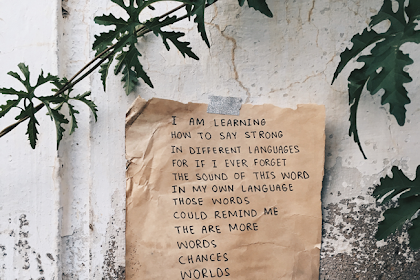 I AM LEARNING
HOW TO SAY STRONG
IN DIFFERENT LANGUAGES
FOR IF I EVER FORGET
THE SOUND OF THIS WORD
IN MY OWN LANGUAGE
THOSE WORDS
COULD REMIND ME
THE ARE MORE
WORDS
CHANCES
WORLDS